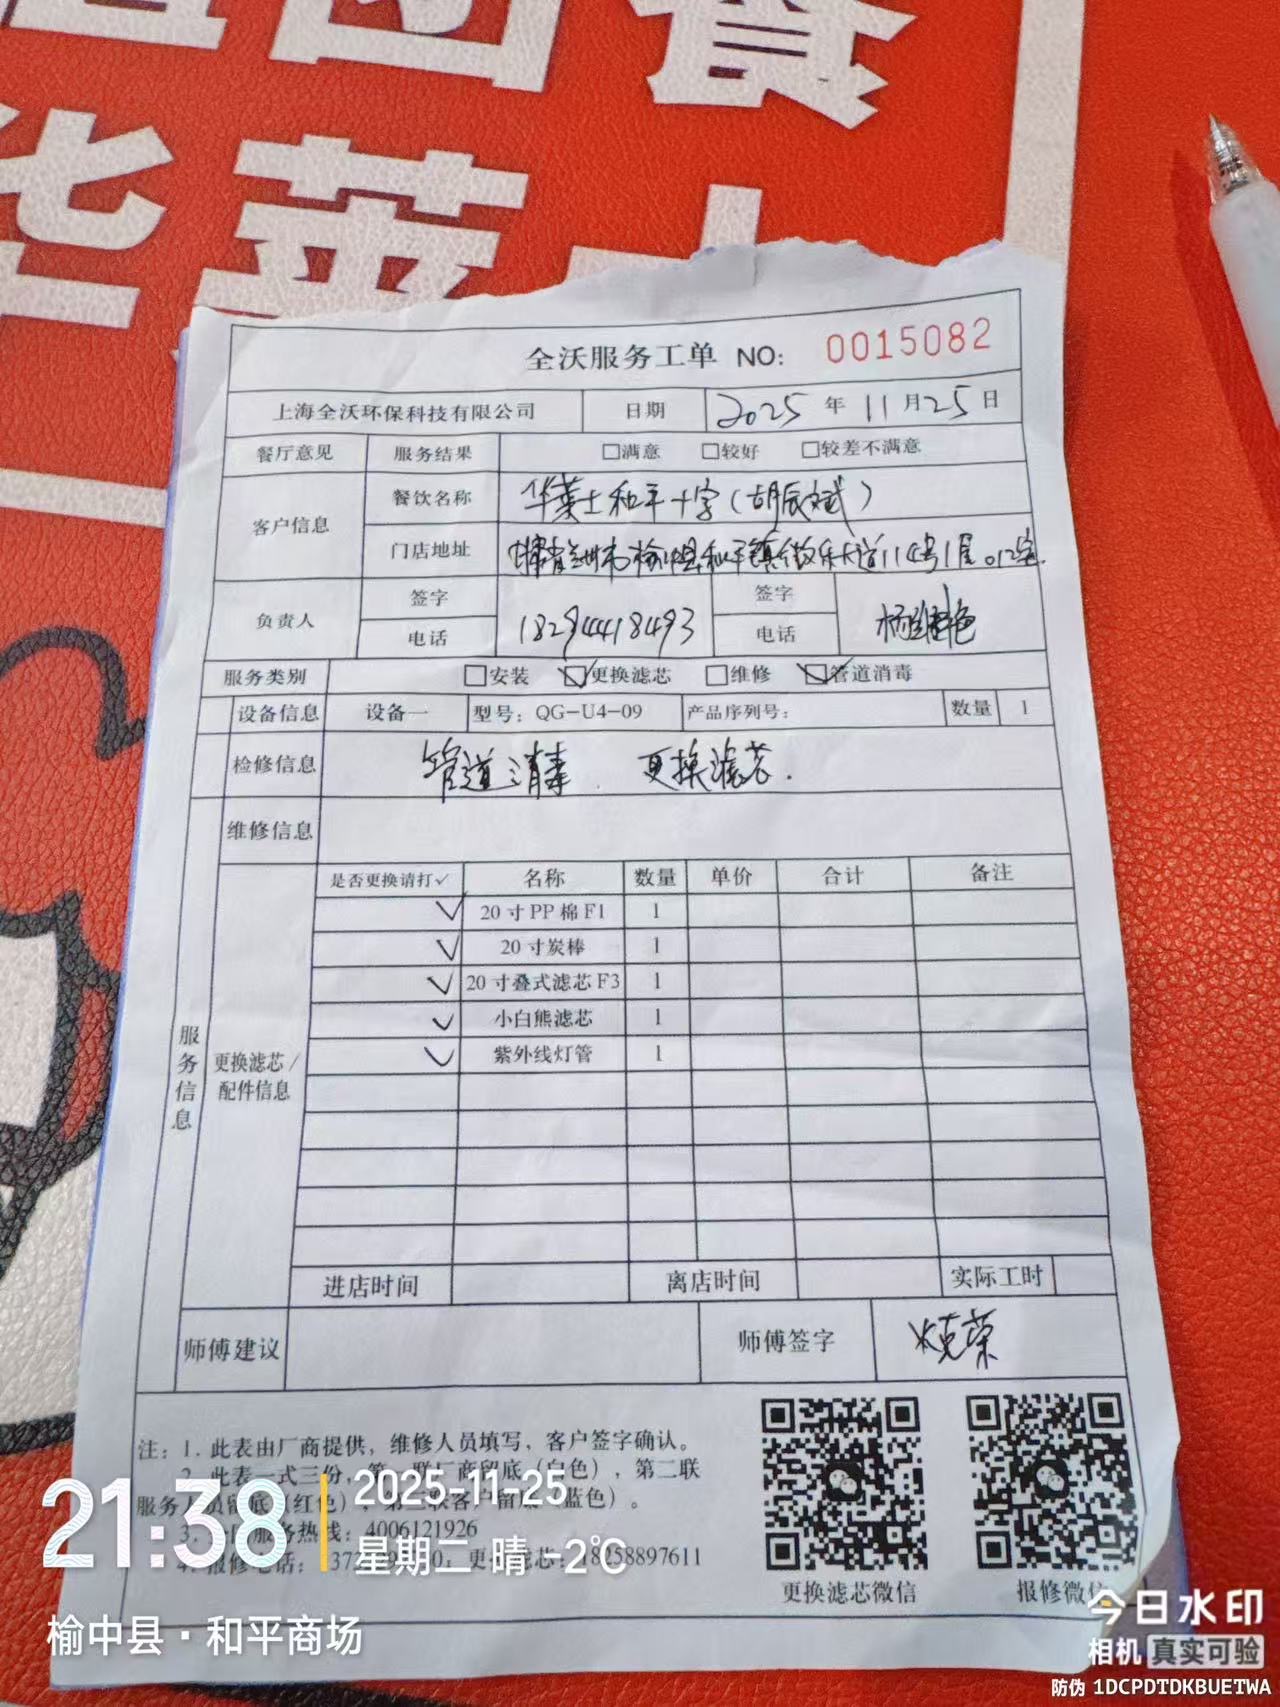 团餐
华莱士
全沃服务工单 NO: 0015082
上海全沃环保科技有限公司 日期 2025 年 11 月 25 日
餐厅意见 服务结果 □满意 □较好 □较差不满意
客户信息 餐饮名称 华莱士和平十字(胡辰斌)
门店地址 甘肃省兰州市榆中县和平镇 乐大道114号1层012室
负责人 签字 电话 18294418493 签字 电话
服务类别 □安装 ☑更换滤芯 □维修 ☑管道消毒
设备信息 设备一 型号: QG-U4-09 产品序列号: 数量 1
检修信息 管道消毒 . 更换滤芯.
维修信息
服务信息
更换滤芯/配件信息
是否更换请打✓ 名称 数量 单价 合计 备注
✓ 20寸PP棉F1 1
✓ 20寸炭棒 1
✓ 20寸叠式滤芯F3 1
✓ 小白熊滤芯 1
✓ 紫外线灯管 1
进店时间 离店时间 实际工时
师傅建议 师傅签字 克荣
注: 1. 此表由厂商提供, 维修人员填写, 客户签字确认。
2. 此表一式三份, 第一联厂商留底(白色), 第二联
服务人员留底(红色), 第三联客户留底(蓝色)。
3. 服务热线: 4006121926
4. 报修电话: 更换滤芯: 18258897611
更换滤芯微信 报修微信
21:38
2025-11-25
星期二 晴 -2℃
榆中县·和平商场
今日水印
相机 真实可验
防伪 1DCPDTDKBUETWA